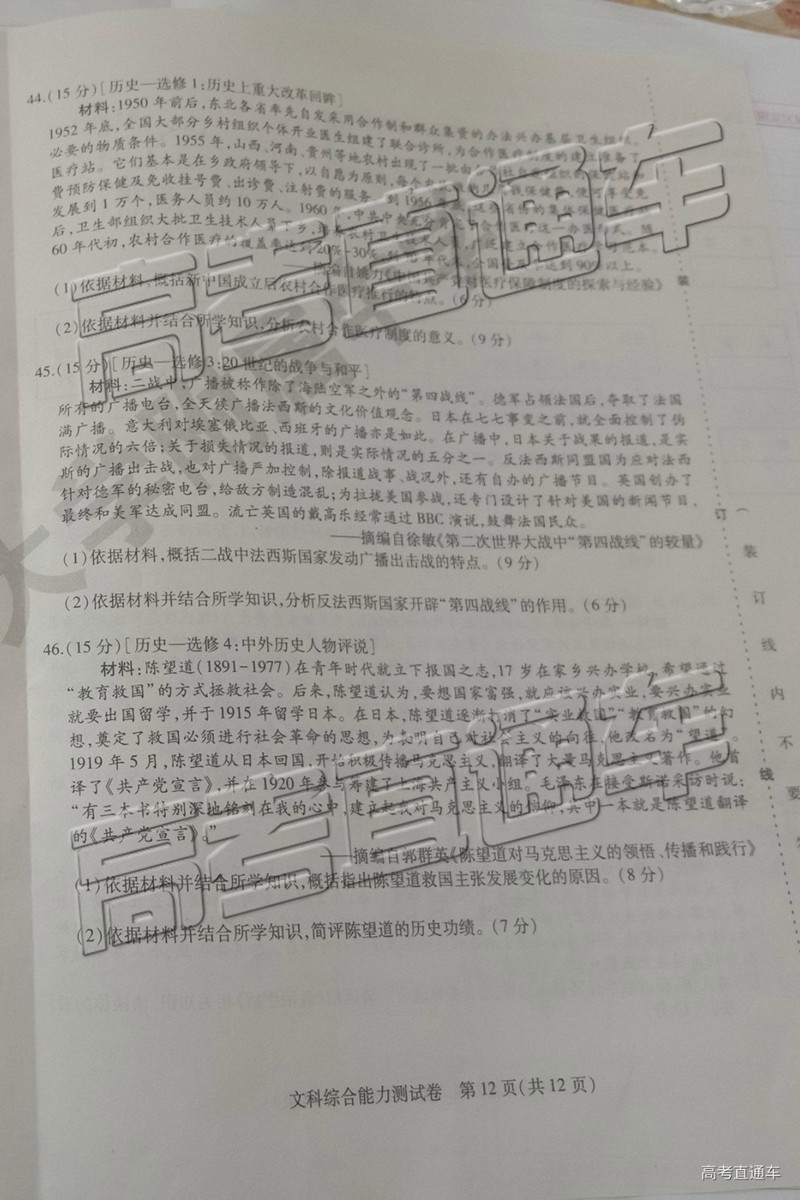 44.(15 分)[历史—选修 1:历史上重大改革回眸]
材料:1950 年前后,东北各省率先自发采用合作制和群众集资的办法兴办基层卫生组织。
1952 年底,全国大部分乡村组织个体开业医生组建了联合诊所,为合作医疗制度的建立准备了
必要的物质条件。1955 年,山西、河南、贵州等地农村出现了一批由
医疗站。它们基本是在乡政府领导下,以自愿为原则,每个
费预防保健及免收挂号费、出诊费、注射费的服务。到 1956
发展到 1 万个,医务人员约 10 万人。1960 年,中共中央
后,卫生部组织大批卫生技术人员下乡,
60 年代初,农村合作医疗的覆盖率达到 20%-30%, 达到 90%以上。
——摘编自姚力 医疗保障制度的探索与经验》
(1)依据材料,概括新中国成立后农村合作医疗推行的特点。(6 分)
(2)依据材料并结合所学知识,分析农村合作医疗制度的意义。(9 分)
45.(15 分)[历史—选修 3:20 世纪的战争与和平]
材料:二战中,广播被称作除了海陆空军之外的“第四战线”。德军占领法国后,夺取了法国
所有的广播电台,全天候广播法西斯的文化价值观念。日本在七七事变之前,就全面控制了伪
满广播。意大利对埃塞俄比亚、西班牙的广播亦是如此。在广播中,日本关于战果的报道,是实
际情况的六倍;关于损失情况的报道,则是实际情况的五分之一。反法西斯同盟国为应对法西
斯的广播出击战,也对广播严加控制,除报道战事、战况外,还有自办的广播节目。英国创办了
针对德军的秘密电台,给敌方制造混乱;为拉拢美国参战,还专门设计了针对美国的新闻节目,
最终和美军达成同盟。流亡英国的戴高乐经常通过 BBC 演说,鼓舞法国民众。
——摘编自徐敏《第二次世界大战中“第四战线”的较量》
(1)依据材料,概括二战中法西斯国家发动广播出击战的特点。(9 分)
(2)依据材料并结合所学知识,分析反法西斯国家开辟“第四战线”的作用。(6 分)
46.(15 分)[历史—选修 4:中外历史人物评说]
材料:陈望道(1891-1977)在青年时代就立下报国之志,17 岁在家乡兴办学校,希望通过
“教育救国”的方式拯救社会。后来,陈望道认为,要想国家富强,就应该兴办实业,要兴办实业
就要出国留学,并于 1915 年留学日本。在日本,陈望道逐渐打消了“实业救国”“教育救国”的幻
想,奠定了救国必须进行社会革命的思想,为表明自己对社会主义的向往,他改名为“望道”。
1919 年 5 月,陈望道从日本回国,开始积极传播马克思主义,翻译了大量马克思主义著作。他首
译了《共产党宣言》,并在 1920 年参与筹建了上海共产主义小组。毛泽东在接受斯诺采访时说:
“有三本书特别深地铭刻在我的心中,建立起我对马克思主义的信仰,其中一本就是陈望道翻译
的《共产党宣言》。”
——摘编自郭群英《陈望道对马克思主义的领悟、传播和践行》
(1)依据材料并结合所学知识,概括指出陈望道救国主张发展变化的原因。(8 分)
(2)依据材料并结合所学知识,简评陈望道的历史功绩。(7 分)
文科综合能力测试卷 第 12 页(共 12 页)
装
订
装
订
线
内
不
线
要
高考直通车
高考直通车
高考直通车